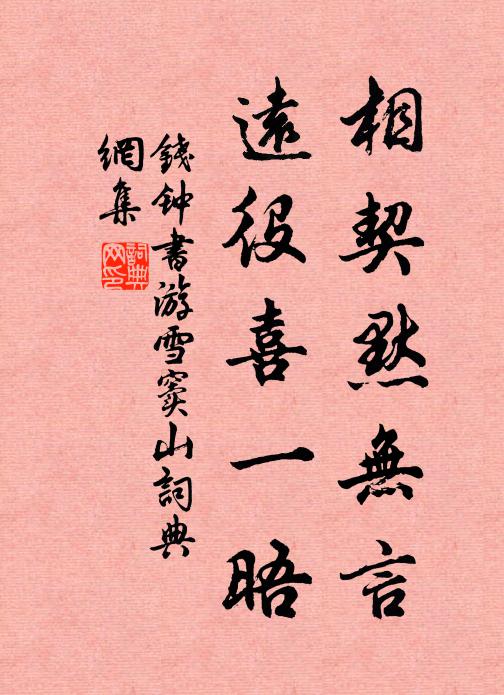 相契默無言
遠役喜一晤
錢钟書游雪竇山詞典
網集
詞典
网印